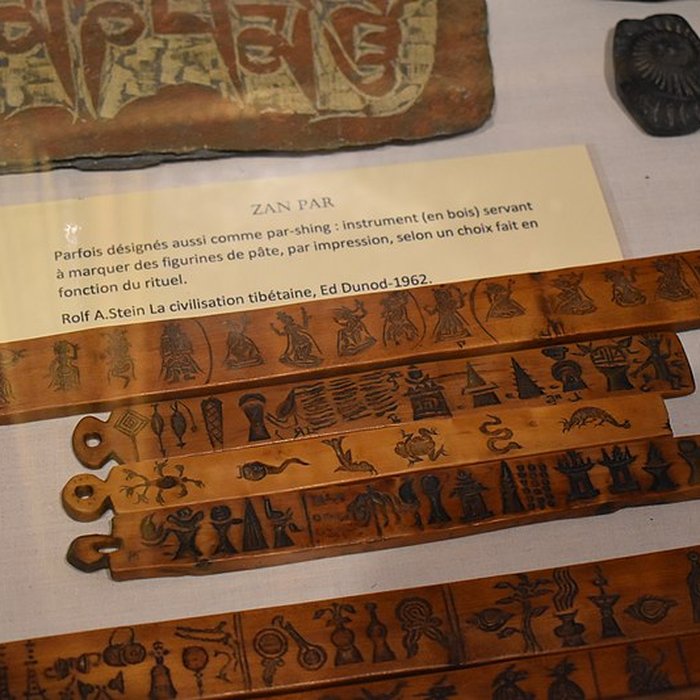 ZAN PAR
Parfois désignés aussi comme par-shing : instrument (en bois) servant
à marquer des figurines de pâte, par impression, selon un choix fait en
fonction du rituel.
Rolf A.Stein La civilisation tibétaine, Ed Dunod-1962.